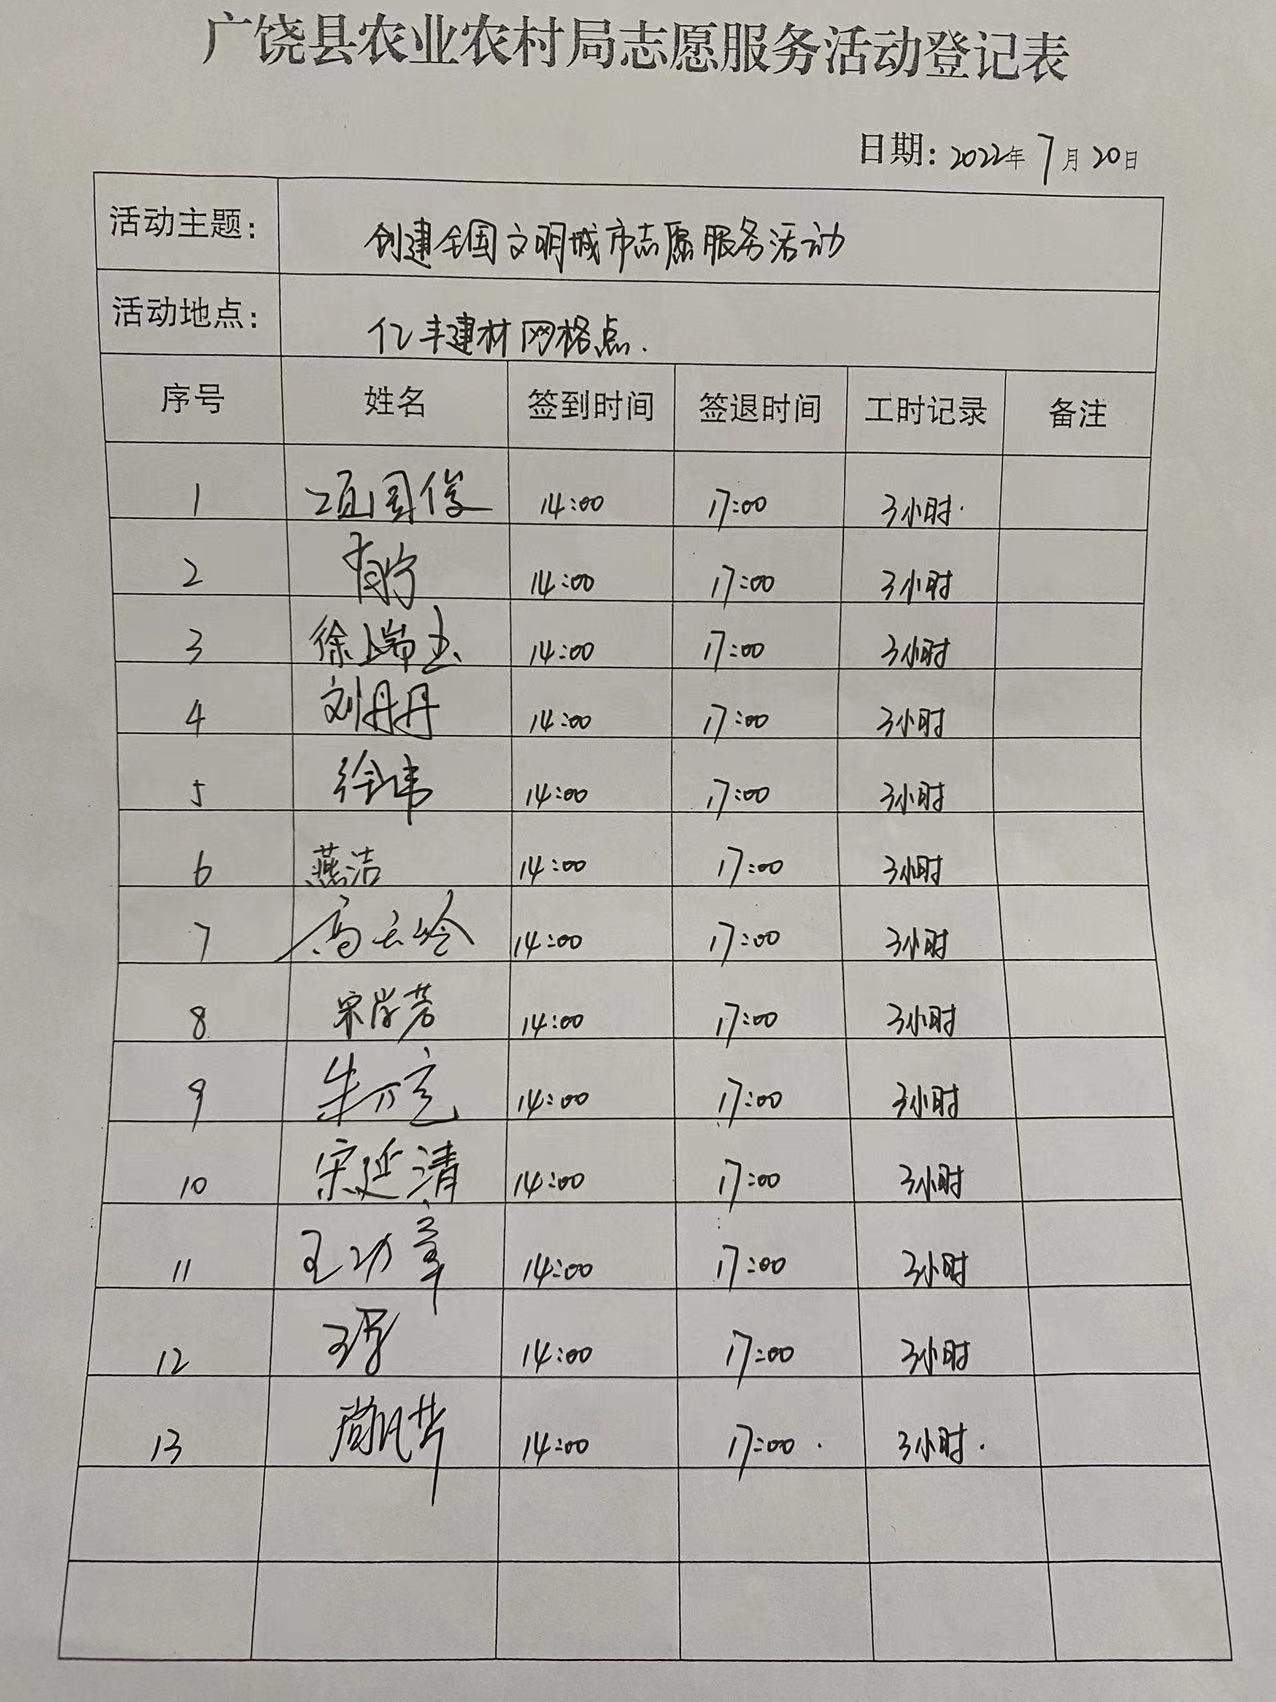 广饶县农业农村局志愿服务活动登记表
日期：2022年7月20日
活动主题： 创建全国文明城市志愿服务活动
活动地点： 亿丰建材网格点.
序号 姓名 签到时间 签退时间 工时记录 备注
1 项国俊 14:00 17:00 3小时.
2 14:00 17:00 3小时
3 徐瑞玉 14:00 17:00 3小时
4 刘丹丹 14:00 17:00 3小时
5 徐伟 14:00 17:00 3小时
6 燕洁 14:00 17:00 3小时
7 14:00 17:00 3小时
8 14:00 17:00 3小时
9 14:00 17:00 3小时
10 宋延清 14:00 17:00 3小时
11 14:00 17:00 3小时
12 14:00 17:00 3小时
13 14:00 17:00. 3小时.